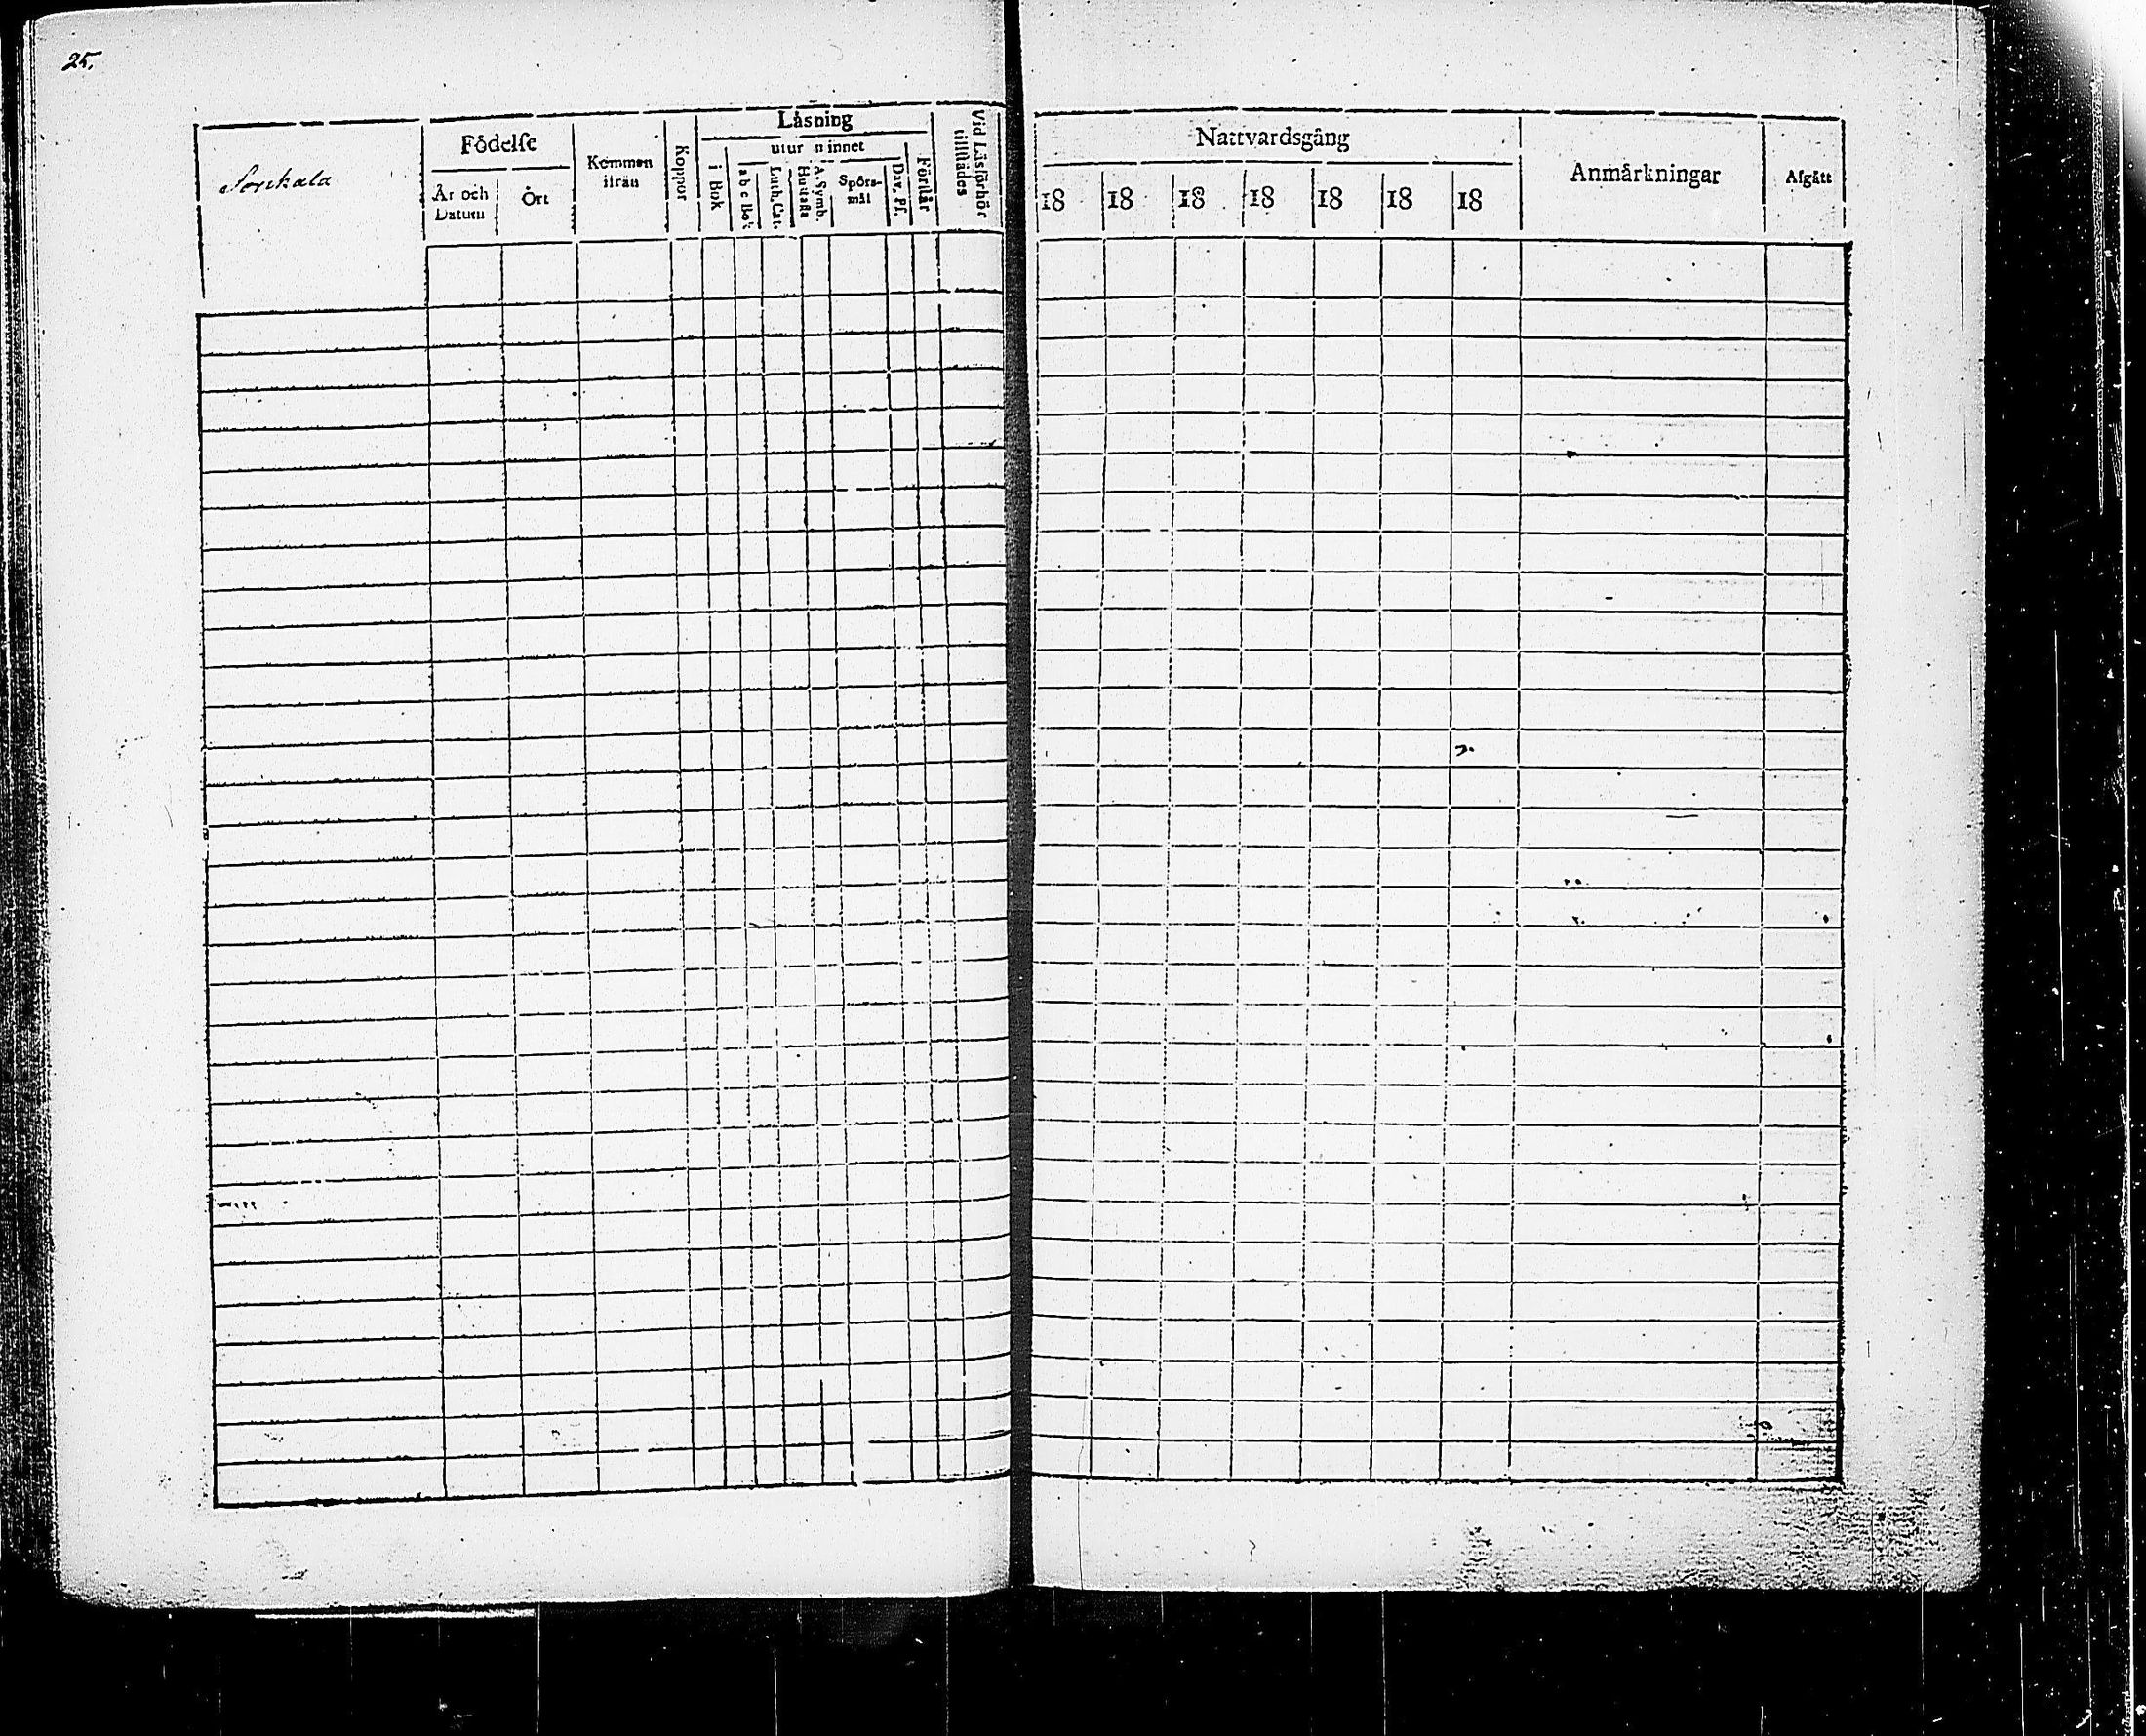 25.
Sorrkala
Födelse
År och
Datum
Ort
Kommen
ifrån
Koppor
Läsning
utur minnet
i Bok
a b c Bok
Luth. Cat.
A. Symb.
Hustafla
Spörs-
mål
Dav. Ps.
Förstår
Vid Läsförhör
tillstädes
Nattvardsgång
18 18 18 18 18 18 18
Anmärkningar
Afgått